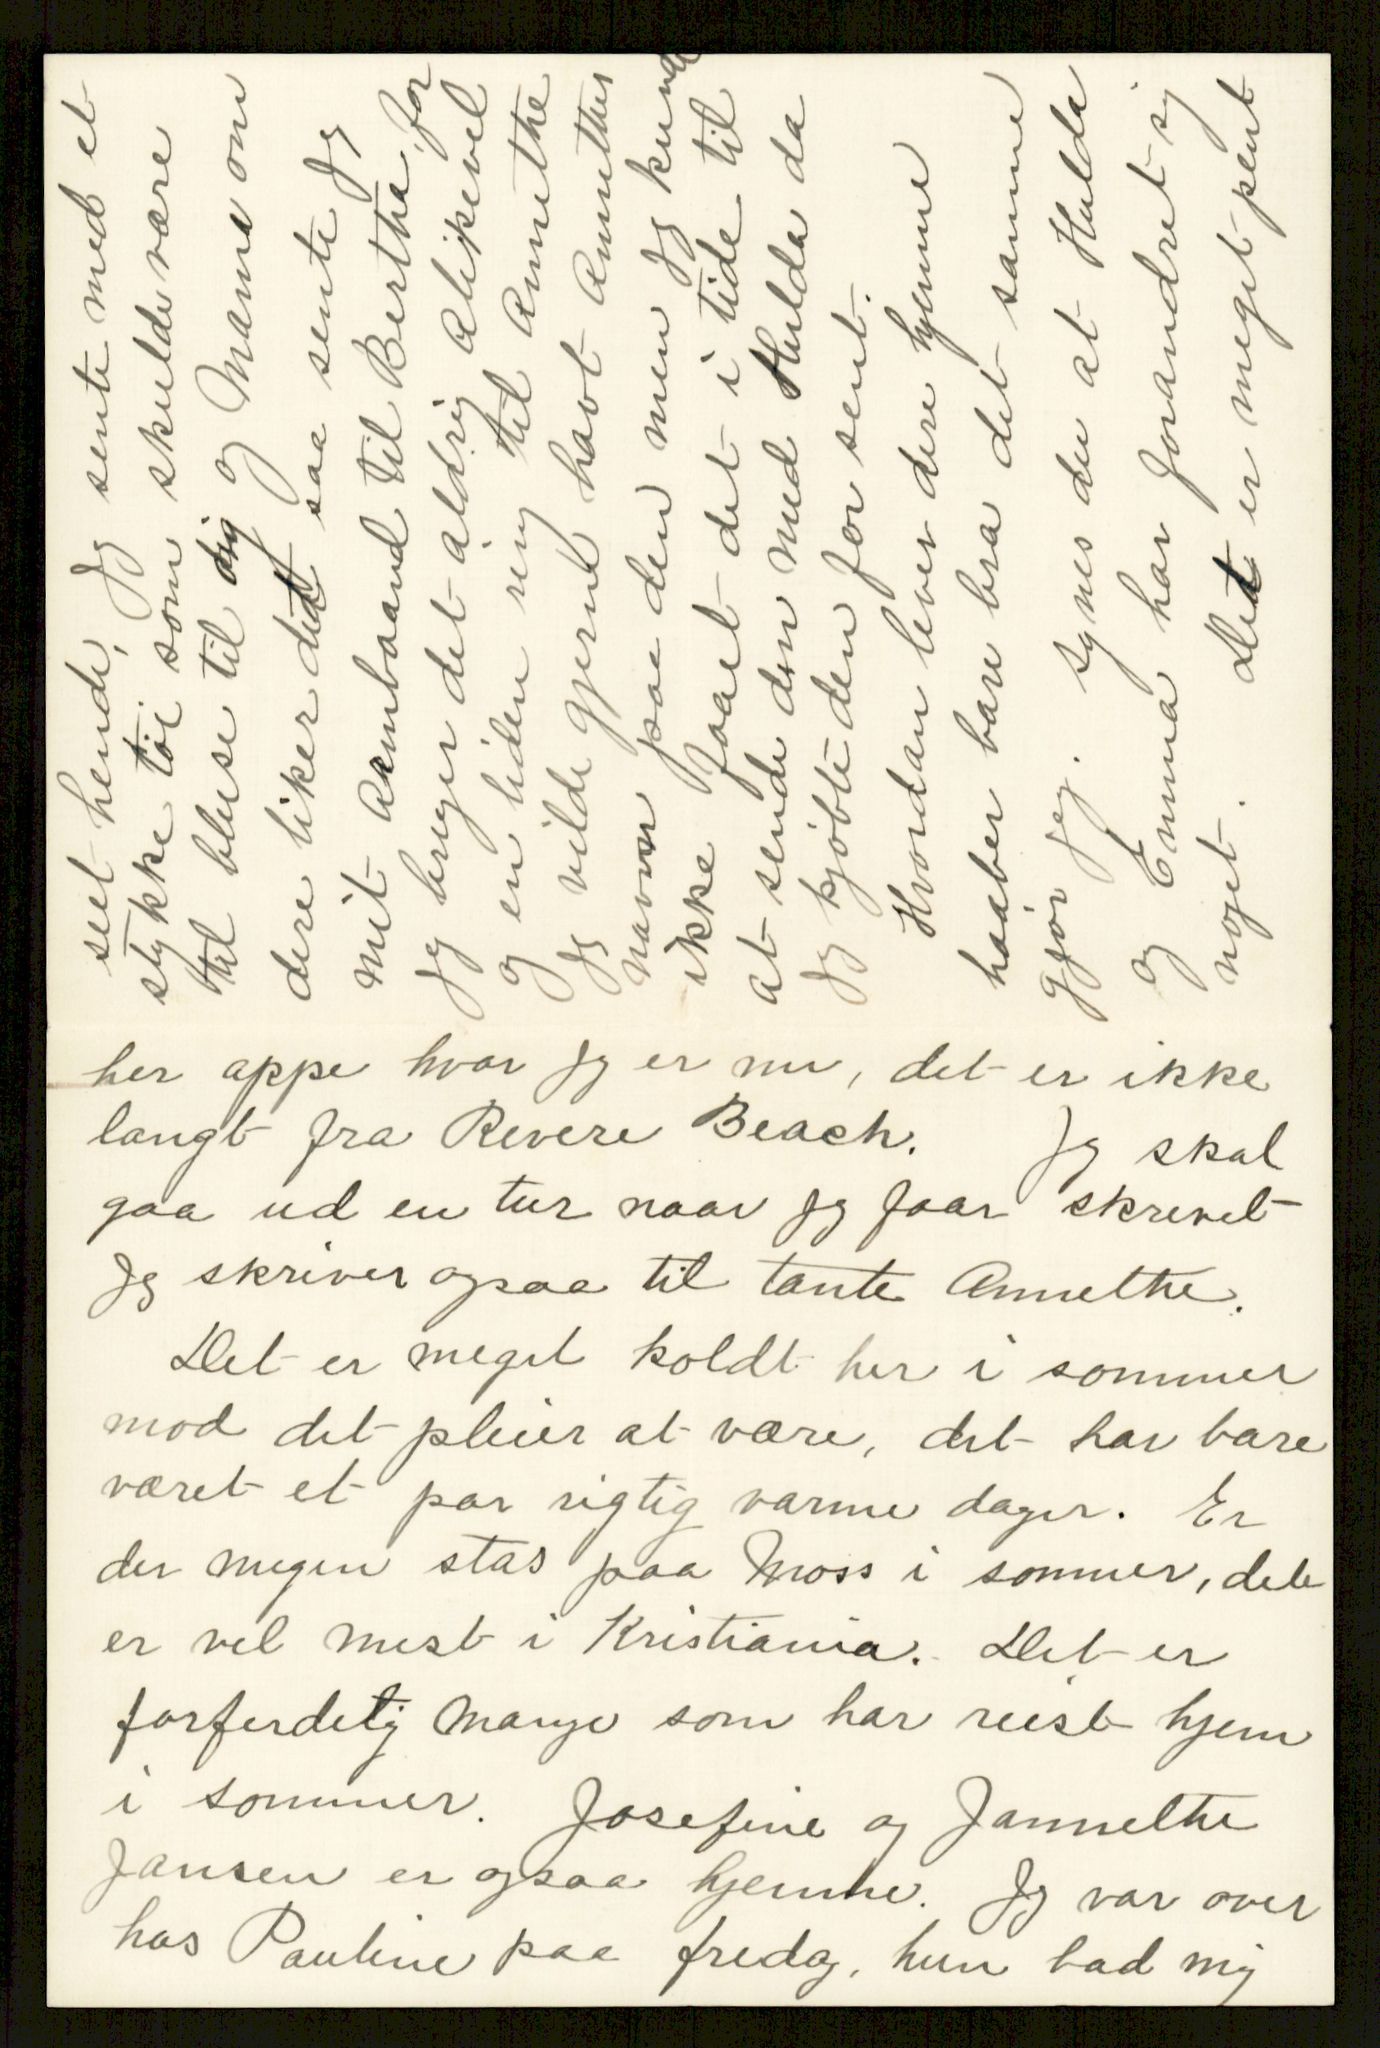 seet hende, Jg sente med et
stykke töi som skulde være
til bluse til dig og Mama om
dere liker det saa sente Jg
mit Armbaand til Bertha, for
Jg bruger det aldrig alikevel
og en liden ring til Annethe
Jg vilde gjerne havt Annethes
navn paa den men Jg kunde
ikke faaet det i tide til
at sende den med Hulda da
Jg kjöbte den for sent.
Hvordan lever dere hjemme
haaber bare bra det samme
gjör jeg. synes du at Hulda
og Emma har forandret sig
noget. Det er meget pent
her oppe hvor Jg er nu, det er ikke
langt fra Revere Beach. Jg skal
gaa ud en tur naar Jg faar skrevet
Jg skriver ogsaa til tante Annethe.
Det er meget koldt her i sommer
mod det pleier at være, det har bare
været et par rigtig varme dager. Er
der megen stas paa Moss i sommer, dete
er vel mest i Kristiania. Det er
forferdelig mange som har reist hjem
i sommer. Josefine og Jannethe
Jansen er ogsaa hjemme. Jg var over
hos Pauline paa fredag, hun bad mig